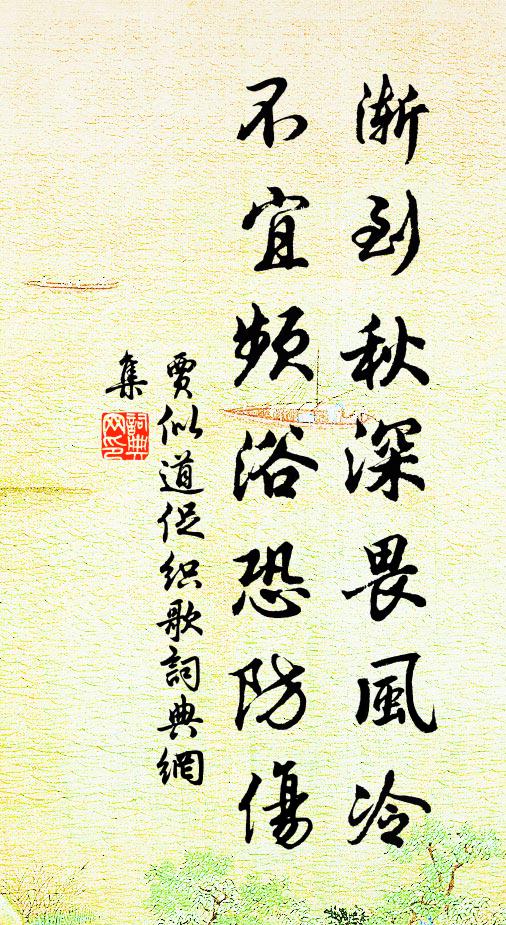 漸到秋深畏風冷
不宜頻浴恐防傷
賈似道促織歌詞典網
集
詞典
网印